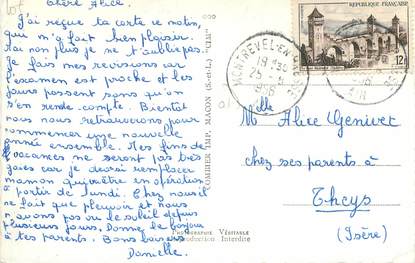 Chère Alice.
J'ai reçue ta carte ce matin,
qui m'a fait bien plaisir.
Moi non plus je ne t'oublie pas.
Je fais mes revisions car
l'examen est proche et les
jours passent sans qu'on
s'en rende compte. Bientôt
nous nous retrouverons pour
commencer une nouvelle
année ensemble. Mes fins de
vacances ne seront pas très
gaies car je devrai remplacer
maman qui va être en opération
à partir de lundi. Chez nous il
ne fait que pleuvoir et nous
n'avons pas vu le soleil depuis
plusieurs jours. Donne le bonjour
à tes parents. Bons baisers
Danielle.
COMBIER IMP. MACON (S.-et-L.) "CIM"
PHOTOGRAPHIE VÉRITABLE
Reproduction Interdite
MONTREVEL-EN-
25-
REPUBLIQUE FRANÇAISE
12F
Melle
M Alice Genivet
chez ses parents à
Theys
(Isère)